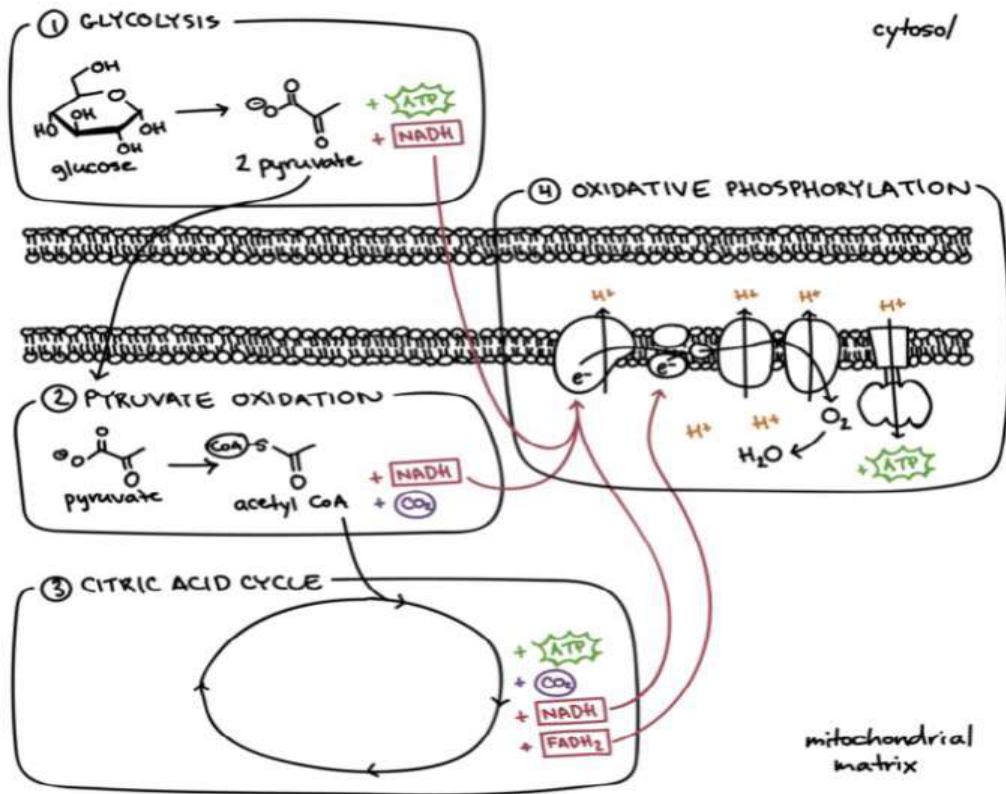 ① GLYCOLYSIS
cytosol
OH
O
OH
HO
OH
OH
glucose
⊖O
O
O
2 pyruvate
+ ATP
+ NADH
④ OXIDATIVE PHOSPHORYLATION
H+ H+ H+ H+
e- e-
H+ H+
O₂
H₂O
+ ATP
② PYRUVATE OXIDATION
⊖O
O
O
pyruvate
CoA-S
O
acetyl CoA
+ NADH
+ CO₂
③ CITRIC ACID CYCLE
+ ATP
+ CO₂
+ NADH
+ FADH₂
mitochondrial
matrix